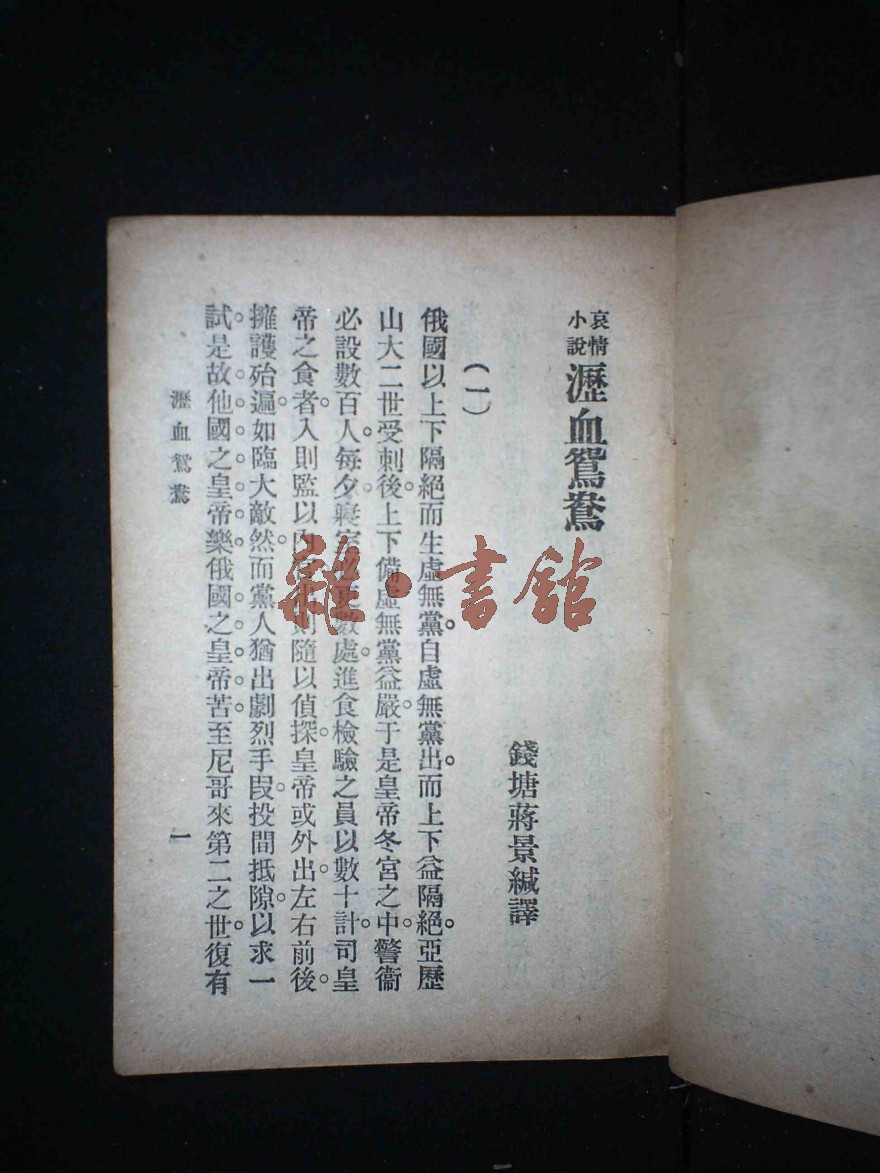 哀情
小說
瀝血鴛鴦
錢塘蔣景緘譯
（一）
俄國以上下隔絕而生虛無黨。自虛無黨出。而上下益隔絕。亞歷
山大二世受刺後。上下備虛無黨益嚴。于是皇帝冬宮之中。警衞
必設數百人。每夕寢室必更數處。進食檢驗之員以數十計。司皇
帝之食者。入則監以內 則隨以偵探。皇帝或外出。左右前後。
擁護殆遍。如臨大敵。然而黨人猶出劇烈手段。投間抵隙。以求一
試。是故他國之皇帝樂。俄國之皇帝苦。至尼哥來第二之世。復有
瀝血鴛鴦
一
雜·書館